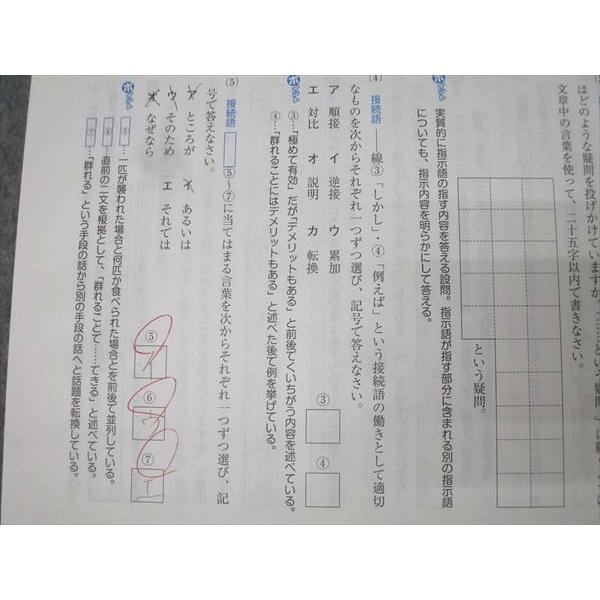 はどのような疑問を投げかけていますか。
文章中の言葉を使って、二十五字以内で書きなさい。
という疑問。
ポイント
実質的に指示語の指す内容を答える設問。指示語が指す部分に含まれる別の指示語
についても、指示内容を明らかにして答える。
(4) 接続語 ――線③「しかし」・④「例えば」という接続語の働きとして適切
なものを次からそれぞれ一つずつ選び、記号で答えなさい。
ア 順接 イ 逆接 ウ 累加
エ 対比 オ 説明 カ 転換
③
④
ポイント
③…「極めて有効」だが「デメリットもある」と前後でくいちがう内容を述べている。
④…「群れることにはデメリットもある」と述べた後で例を挙げている。
(5) 接続語 ⑤~⑦に当てはまる言葉を次からそれぞれ一つずつ選び、記
号で答えなさい。
ア ところが イ あるいは
ウ そのため エ それでは
オ なぜなら
⑤
⑥
⑦
ポイント
⑤…一匹が襲われた場合と何匹か食べられた場合とを前後で並列している。
⑥…直前の二文を根拠として、「群れることで……できる」と述べている。
⑦…「群れる」という手段の話から別の手段の話へと話題を転換している。